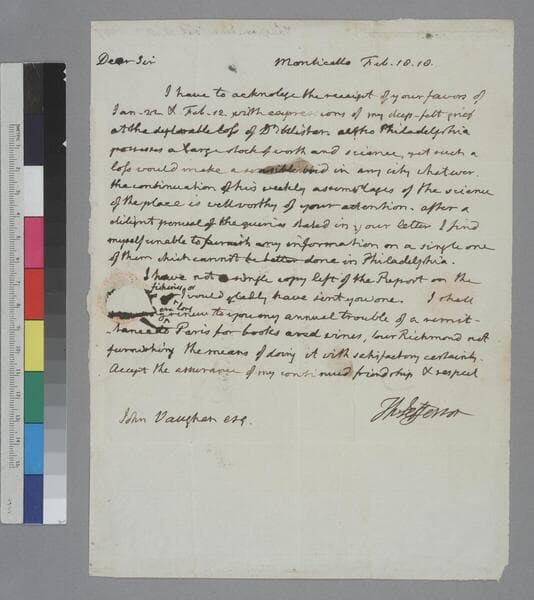 Dear Sir Monticello Feb. 18. 18.
I have to acknolege the receipt of your favors of
Jan. 22 & Feb. 12. with expressions of my deep-felt grief
at the deplorable loss of Dr. Wistar. altho Philadelphia
possesses a large stock of worth and science, yet such a
loss would make a sensible void in any city whatever.
the continuation of his weekly assemblages of the science
of the place is well worthy of your attention. after a
diligent perusal of the queries stated in your letter I find
myself unable to furnish any information on a single one
of them which cannot be better done in Philadelphia.
I have not a single copy left of the Report on the
fishing or
would gladly have sent you one. I shall
renew to you my annual trouble of a remit-
tance to Paris for books and wines, our Richmond not
furnishing the means of doing it with satisfactory certainty.
Accept the assurance of my continued friendship & respect
Th: Jefferson
John Vaughan esq.